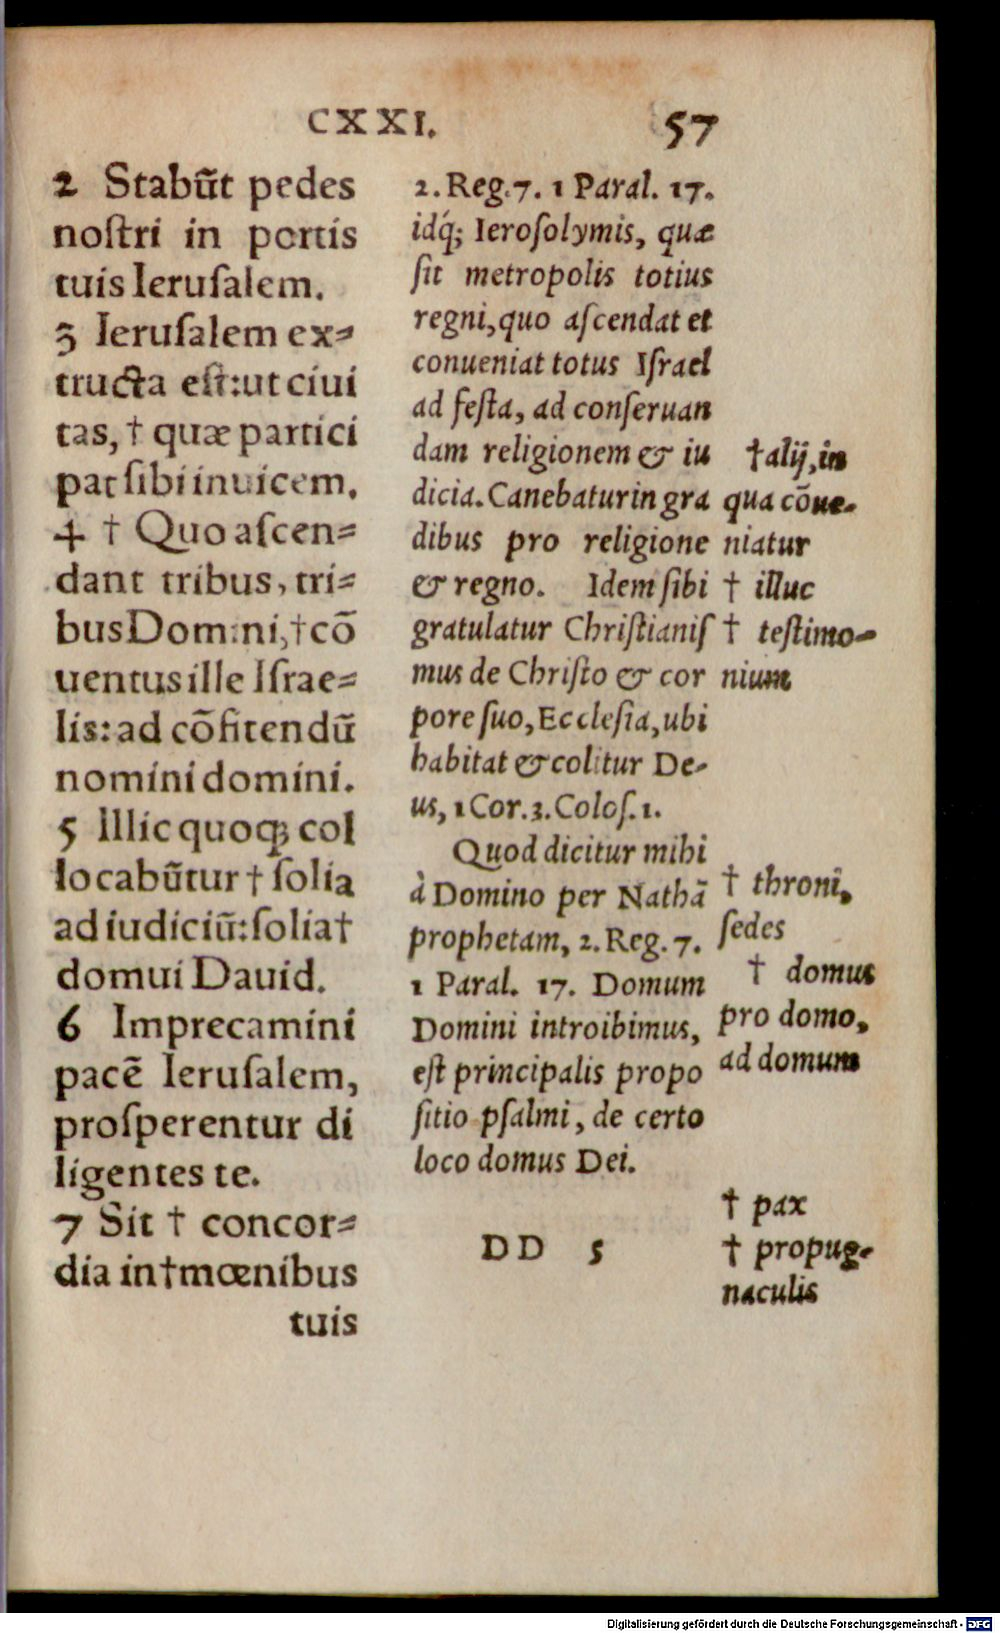 CXXI. 57
2 Stabũt pedes
noſtri in portis
tuis Ieruſalem.
3 Ieruſalem ex⸗
tructa eſt: ut ciui
tas, † quæ partici
pat ſibi inuicem.
4 † Quo aſcen⸗
dant tribus, tri⸗
bus Domini, † cõ
uentus ille Iſrae⸗
lis: ad cõfitendũ
nomini domini.
5 Illic quoqꝫ col
locabũtur † ſolia
ad iudiciũ: ſolia †
domui Dauid.
6 Imprecamini
pacẽ Ieruſalem,
proſperentur di
ligentes te.
7 Sit † concor⸗
dia in † mœnibus
tuis
2. Reg. 7. 1 Paral. 17.
idq́; Ieroſolymis, quæ
ſit metropolis totius
regni, quo aſcendat et
conueniat totus Iſrael
ad feſta, ad conſeruan
dam religionem & iu
dicia. Canebatur in gra
dibus pro religione
& regno. Idem ſibi
gratulatur Chriſtianiſ
mus de Chriſto & cor
pore ſuo, Eccleſia, ubi
habitat & colitur De-
us, 1 Cor. 3. Coloſ. 1.
Quod dicitur mihi
à Domino per Nathã
prophetam, 2. Reg. 7.
1 Paral. 17. Domum
Domini introibimus,
eſt principalis propo
ſitio pſalmi, de certo
loco domus Dei.
DD 5
† alij, in
qua cõue-
niatur
† illuc
† teſtimo-
nium
† throni,
ſedes
† domus
pro domo,
ad domum
† pax
† propug-
naculis
Digitalisierung gefördert durch die Deutsche Forschungsgemeinschaft - DFG